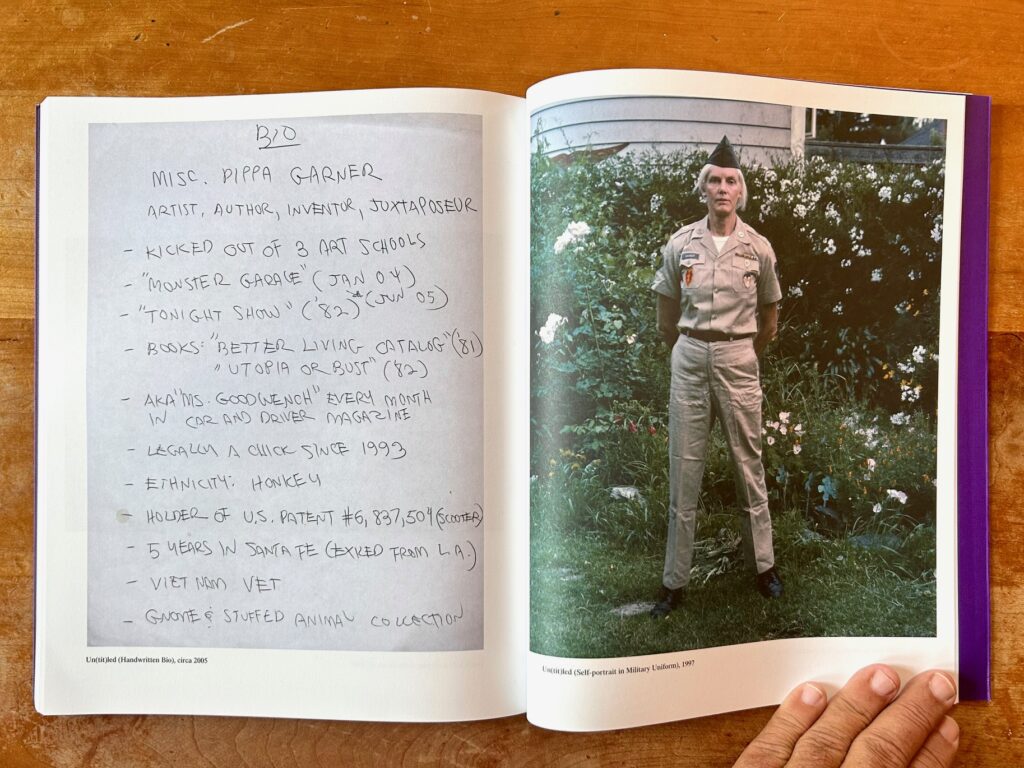 BIO
MISC. PIPPA GARNER
ARTIST, AUTHOR, INVENTOR, JUXTAPOSEUR
- KICKED OUT OF 3 ART SCHOOLS
- "MONSTER GARAGE" (JAN 04)
- "TONIGHT SHOW" ('82)* (JUN 05)
- BOOKS: "BETTER LIVING CATALOG" (81)
"UTOPIA OR BUST" ('82)
- AKA "MS. GOODWENCH" EVERY MONTH
IN CAR AND DRIVER MAGAZINE
- LEGALLY A CHICK SINCE 1993
- ETHNICITY: HONKEY
- HOLDER OF U.S. PATENT #6,837,504 (SCOOTER)
- 5 YEARS IN SANTA FE (EXKED FROM L.A.)
- VIET NAM VET
- GNOME & STUFFED ANIMAL COLLECTION
Un(tit)led (Handwritten Bio), circa 2005
Un(tit)led (Self-portrait in Military Uniform), 1997